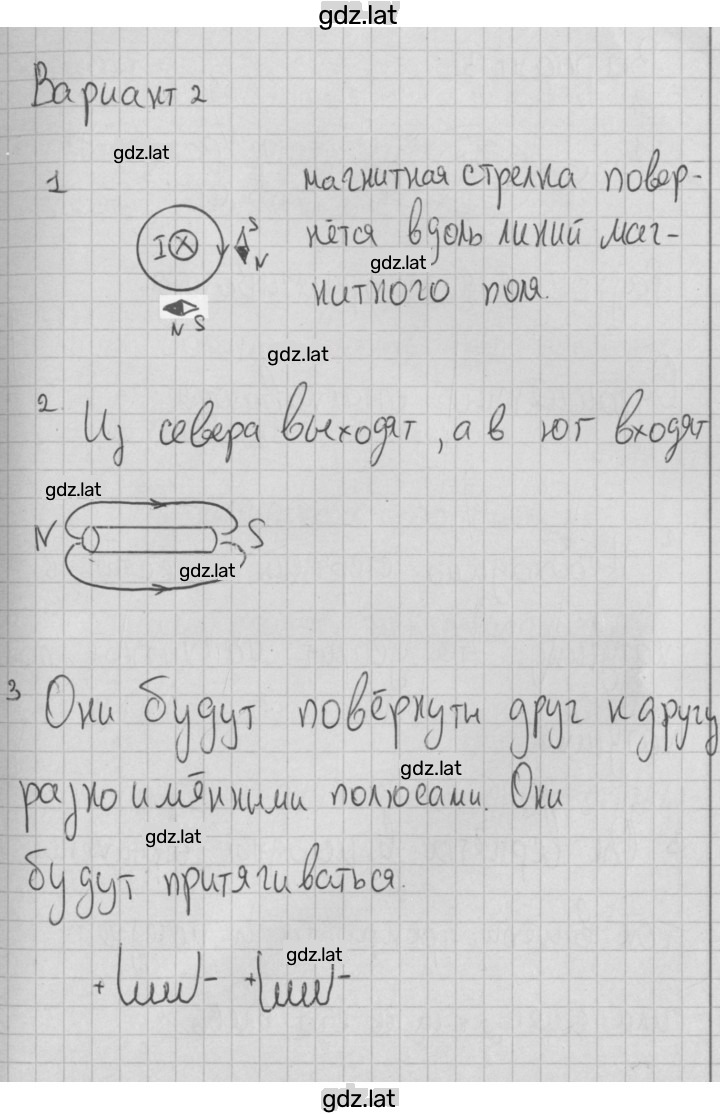 gdz.lat
Вариант 2
gdz.lat
1
I
S
N
N S
магнитная стрелка повер-
нётся вдоль линий маг-
gdz.lat
нитного поля.
gdz.lat
2 Из севера выходят, а в юг входят
gdz.lat
N
S
gdz.lat
3 Они будут повёрнуты друг к другу
gdz.lat
разноимёнными полюсами. Они
gdz.lat
будут притягиваться.
gdz.lat
+ - + -
gdz.lat